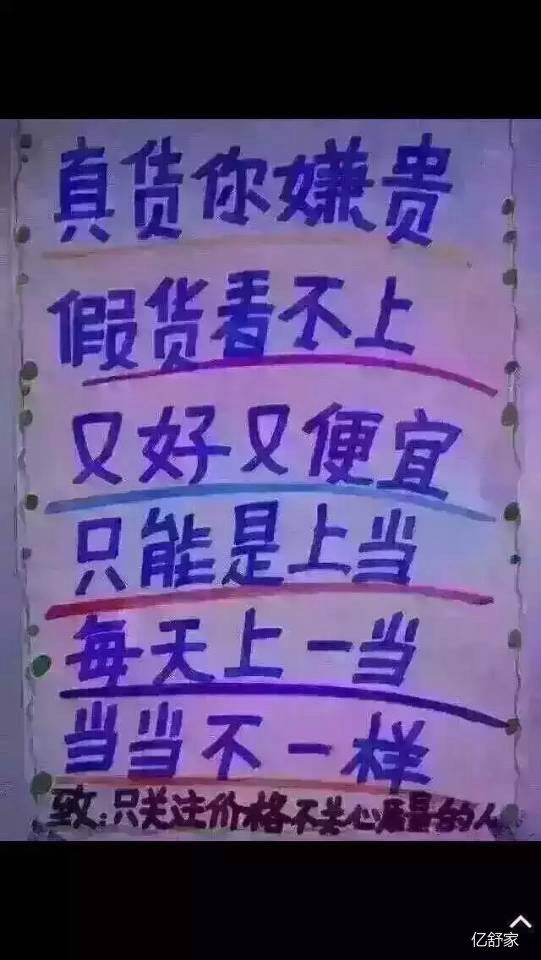 真货你嫌贵
假货看不上
又好又便宜
只能是上当
每天上一当
当当不一样
致:只关注价格不关心质量的人
亿舒家